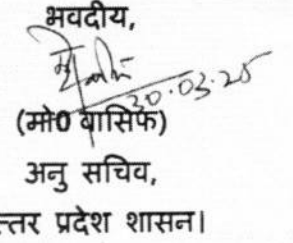 भवदीय,
30.03.25
(मो0 वासिफ)
अनु सचिव,
त्तर प्रदेश शासन।